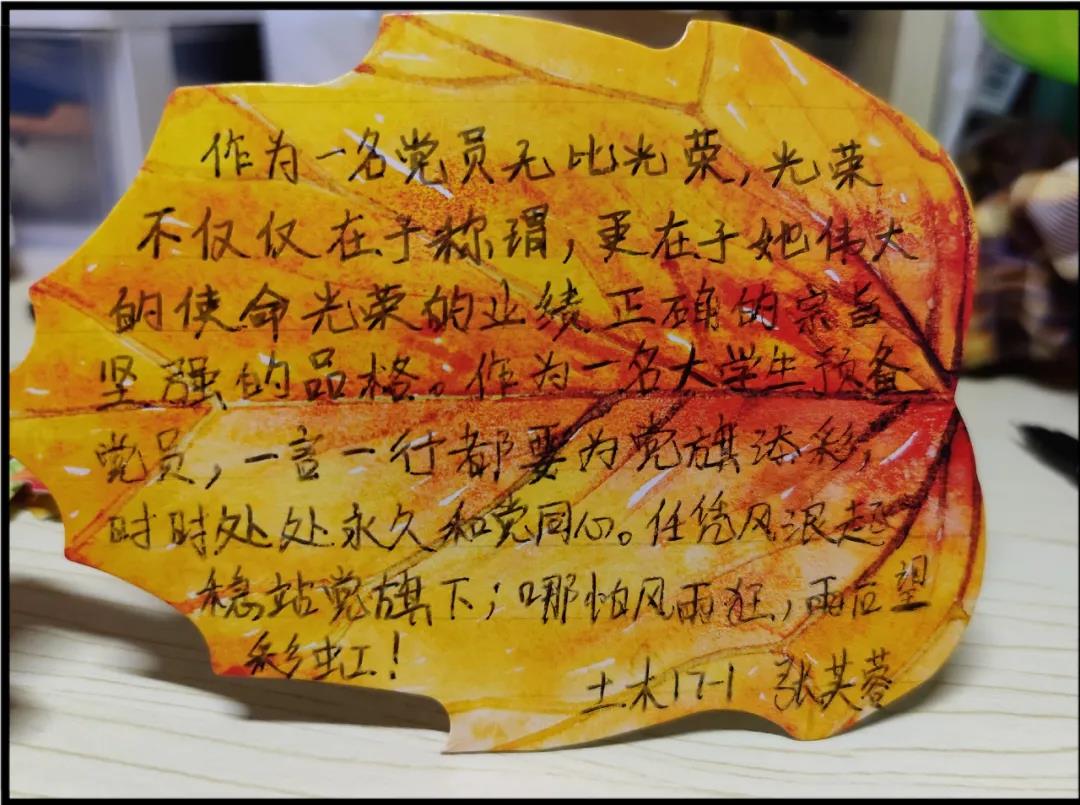 作为一名党员无比光荣,光荣
不仅仅在于称谓,更在于她伟大
的使命光荣的业绩正确的宗旨
坚强的品格。作为一名大学生预备
党员,一言一行都要为党旗添彩,
时时处处永久和党同心。任凭风浪起,
稳站党旗下;哪怕风雨狂,雨后望
彩虹!
土木17-1 张芙蓉